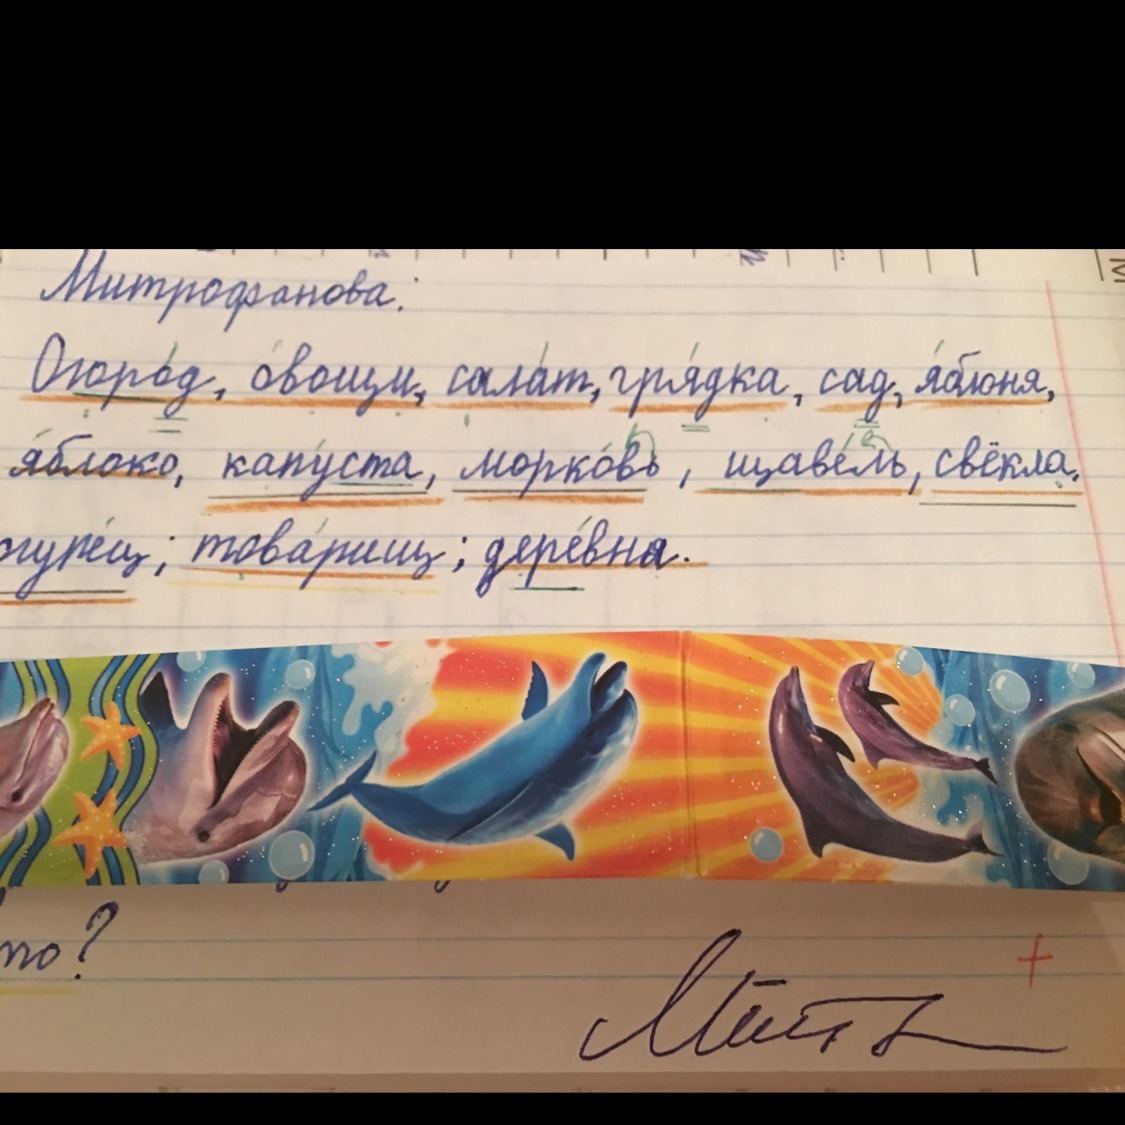 Митрофанова:
Огоро́д, о́вощи, сала́т, гря́дка, сад, я́блоня,
я́блоко, капу́ста, морко́вь, щаве́ль, свёкла,
огуре́ц; това́рищ; дере́вна.
то?